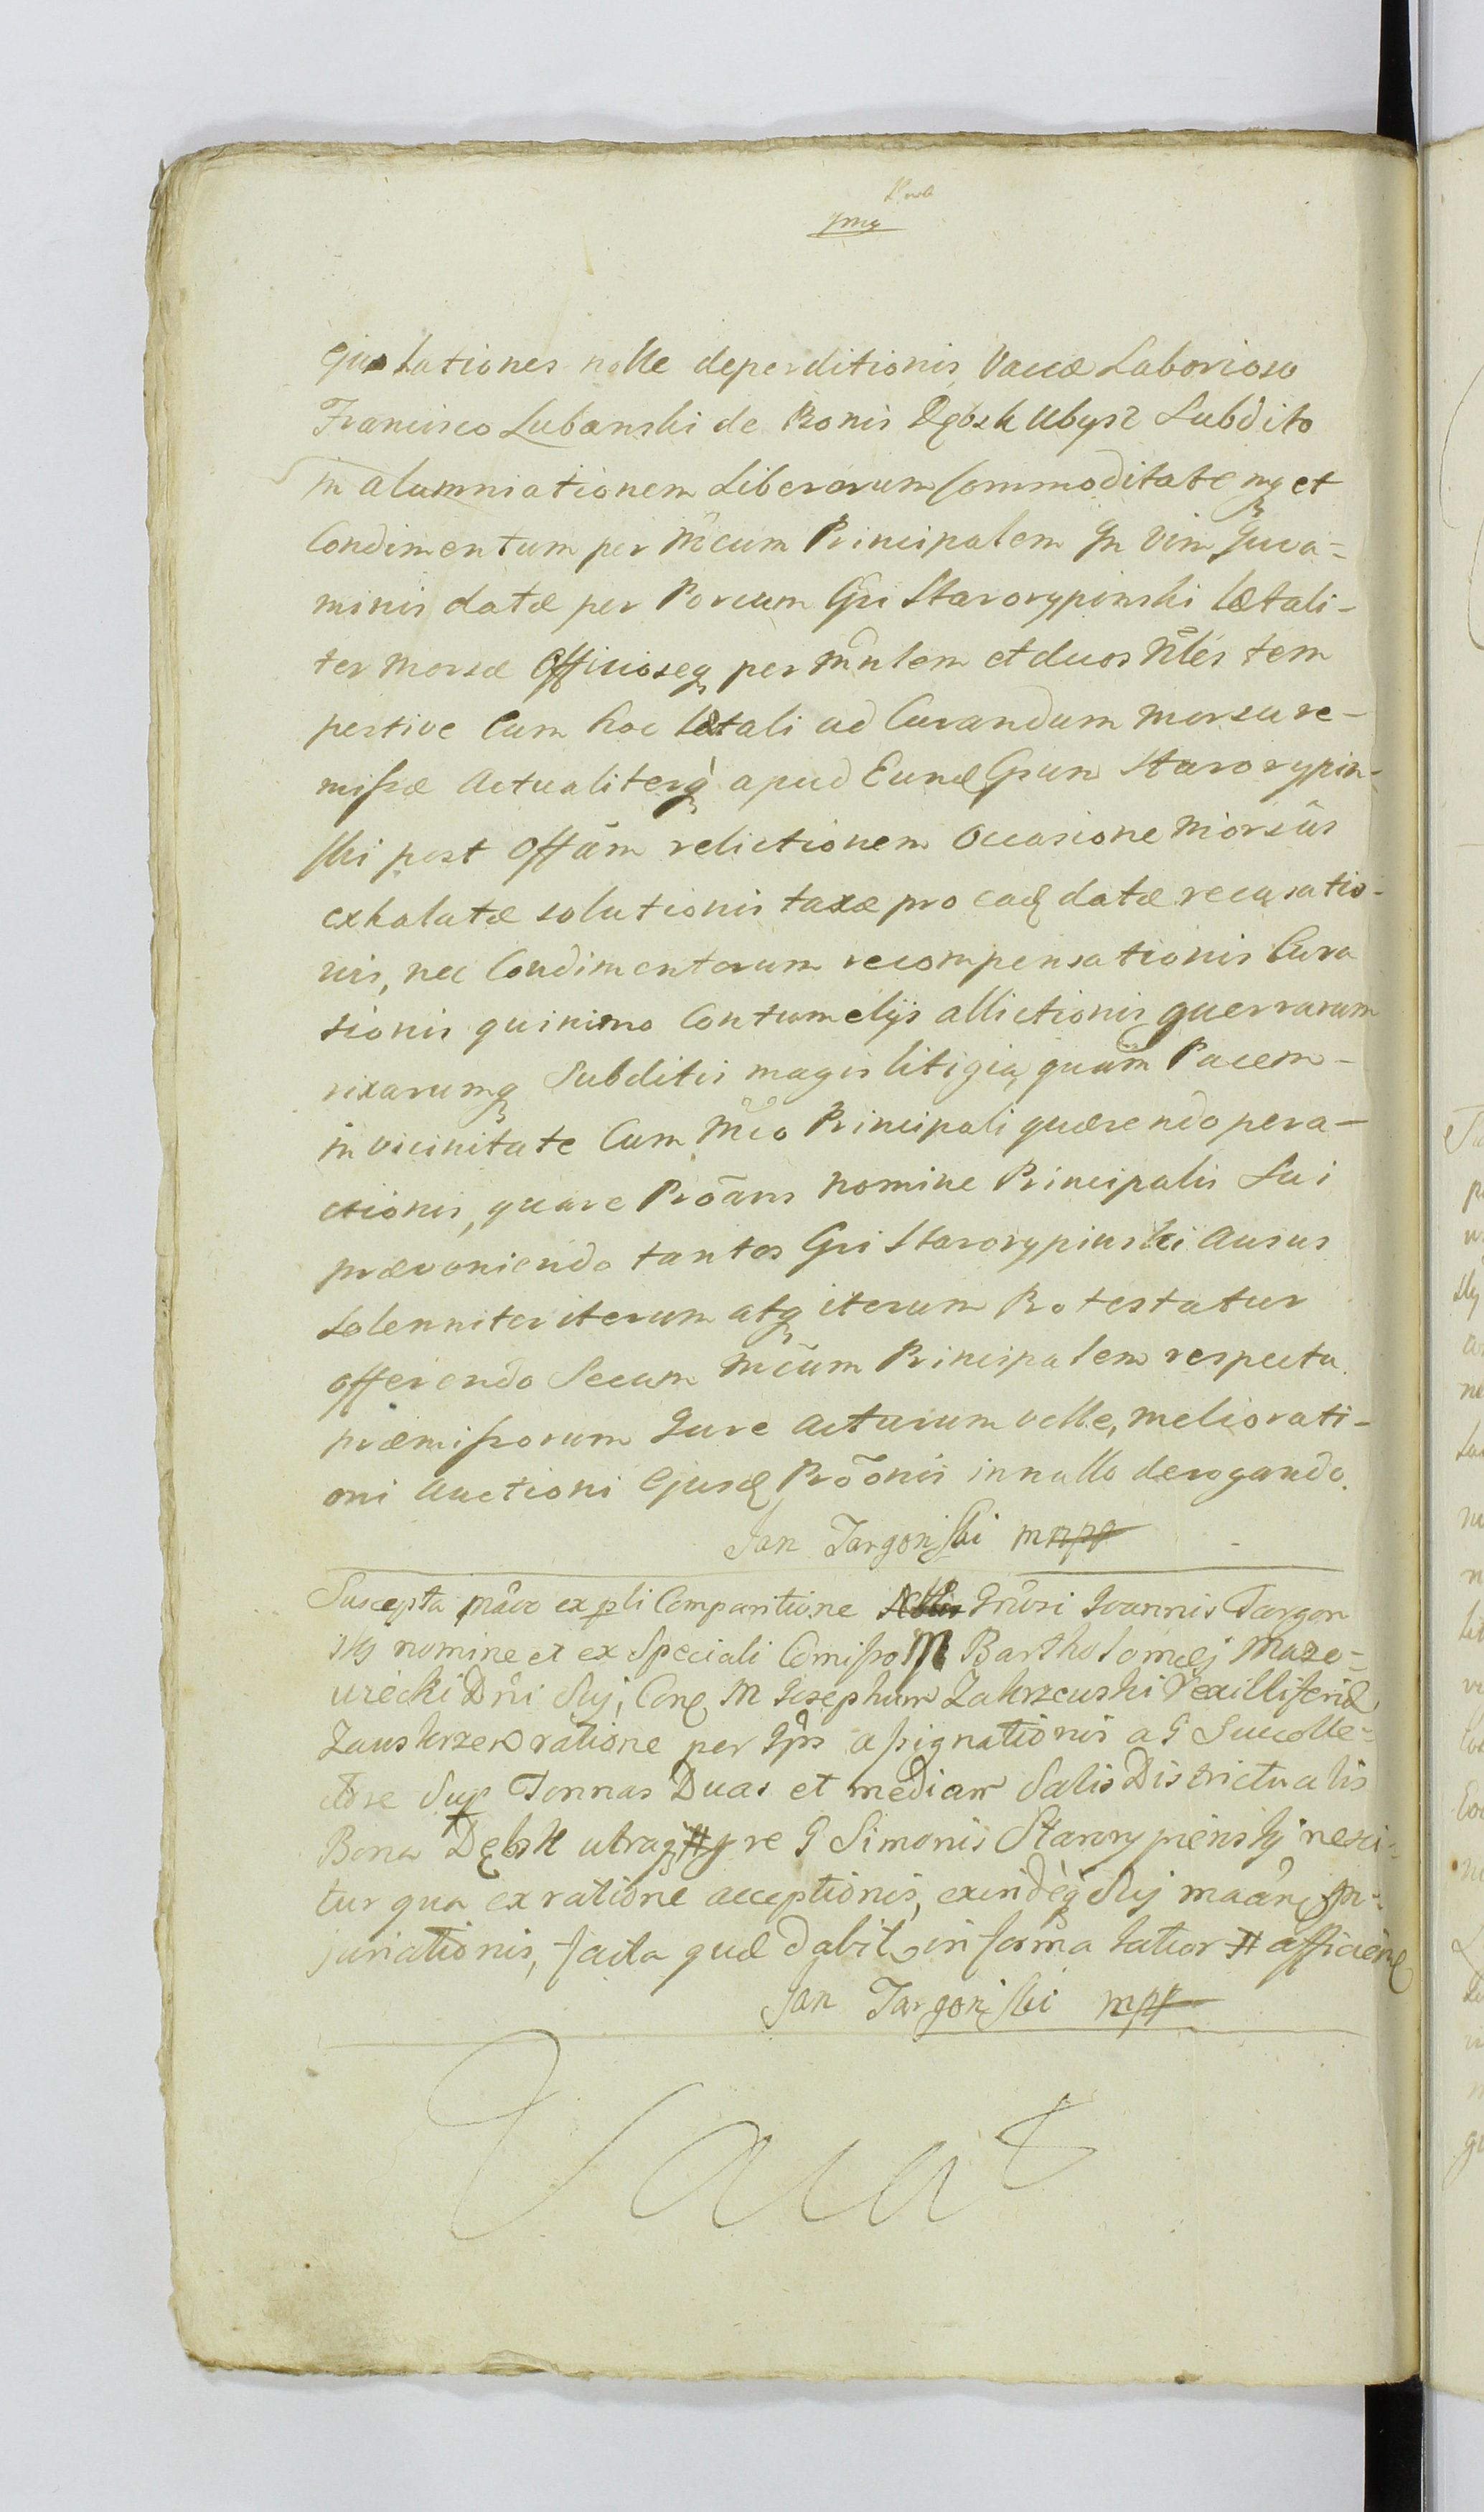 quo lationes nolle deperditionis, Vaccæ Laborioso
Francisco Lubanski de Bonis Dębsk Ubysz Subdito
in alumniationem Liberorum Commoditatemq et
Condimentum per Mcum Principalem In Vim Juva=
minis datæ per Porcum Gsi Starorypinski lætali-
ter morsæ Officioseq per Mnlem et duos Nles tem
pestive Cum hoc lætali ad Curandum morsu re-
missæ Actualiterq apud Eund Gsum Starorypin-
ski post Offam relictionem Occasione Morsus
exhalatæ solutionis taxæ pro ead datæ recusatio-
nis, nec Condimentorum recompensationis Cura
tionis quinimo Contumelijs allictionis guerrarum
rixarumq Subditis magis litigia, quam Pacem-
in vicinitate Cum Mco Principali quærendo pera-
ctionis, quare Proans nomine Principalis Sui
præveniendo tantos Gsi Starorypinski Ausus
Solenniter iterum atq iterum Protestatur
offerendo Secum Mcum Principalem respectu
præmissorum Jure Acturum velle, meliorati-
oni Auctioni Ejusd Proonis in nullo derogando.
Jan Targoński mpp
Suscepta mavo ex pli Comparitione Grosi Ioannis Targon
skj nomine et ex Speciali Comisso M Bartholomæj Mazo=
wiecki Dni Suj, Con M Josephum Zakrzewski Vexilliferid
Zauskrzen ratione per Ips assignationis a G Succolle=
ctore Sup Tonnas Duas et mediam Salis Districtualis
Bona Dębsk utraq re G Simonis Starorypienskj nesci=
tur qua ex ratione acceptionis, exindeq Suj maan In=
juriationis, facta quæ dabit in forma latior afficien
Jan Targoński mpp
Vacat